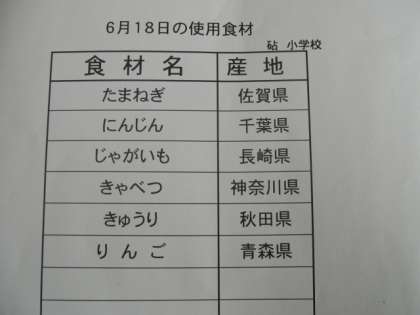 6月18日の使用食材
砧 小学校
食材名 産地
たまねぎ 佐賀県
にんじん 千葉県
じゃがいも 長崎県
きゃべつ 神奈川県
きゅうり 秋田県
りんご 青森県